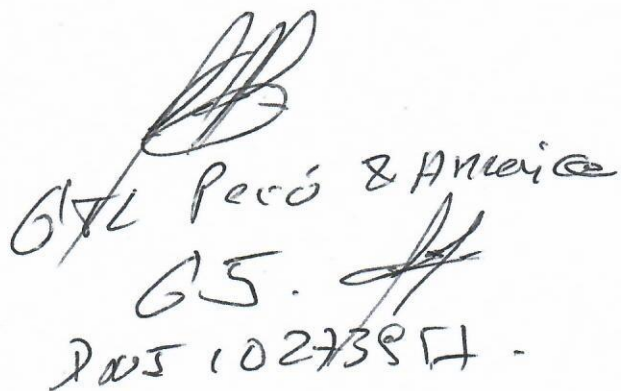 GTL Perú & America
G5.
DNI 10273951.